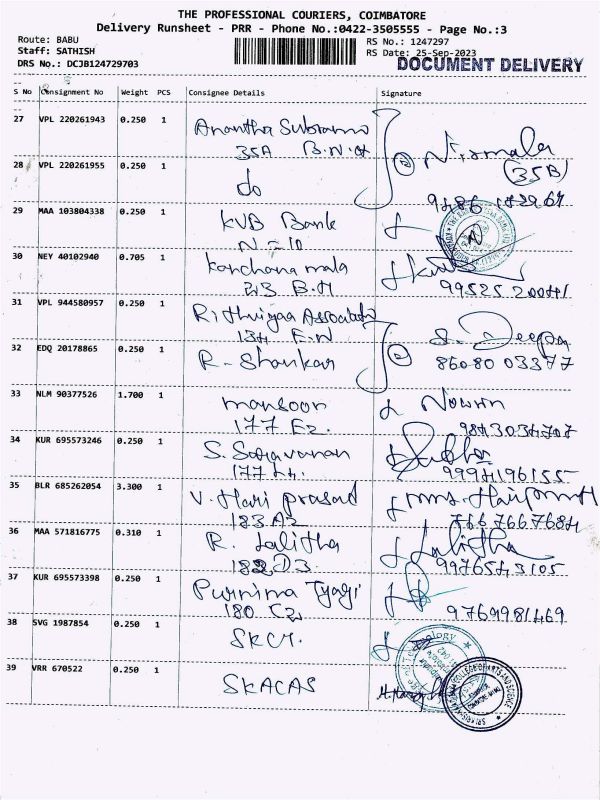 THE PROFESSIONAL COURIERS, COIMBATORE
Delivery Runsheet - PRR - Phone No.:0422-3505555 - Page No.:3
Route: BABU RS No.: 1247297
Staff: SATHISH RS Date: 25-Sep-2023
DRS No.: DCJB124729703 DOCUMENT DELIVERY
S No Consignment No Weight PCS Consignee Details Signature
27 VPL 220261943 0.250 1 Anantha Subramo Nirmala
35A B.N.G (2) (35B)
28 VPL 220261955 0.250 1 do
29 MAA 103804338 0.250 1 KVB Bank
N-10
30 NEY 40102940 0.705 1 Kanchana mala
43 B.M 99525 20041
31 VPL 944580957 0.250 1 Rithuigaa Associate S. Deepa
134 E.N
32 EDQ 20178865 0.250 1 R. Shankar (2) 86080 03377
33 NLM 90377526 1.700 1 mansoon
177 E2. 9843034707
34 KUR 695573246 0.250 1 S. Saravanan Subha
177 9994196155
35 BLR 685262054 3.300 1 V. Hari prasad
183 A2 7667667684
36 MAA 571816775 0.310 1 R. Lalitha Lalitha
D3 9976543105
37 KUR 695573398 0.250 1 Purnima Tyagi
180 C2 9769981469
38 SVG 1987854 0.250 1 SKCT.
39 VRR 670522 0.250 1 SKACAS